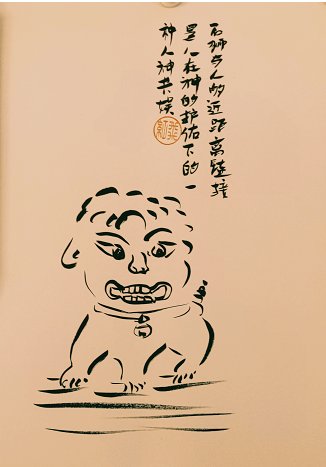 石狮与人的近距离链接
是人在神的护佑下的一
种人神共娱